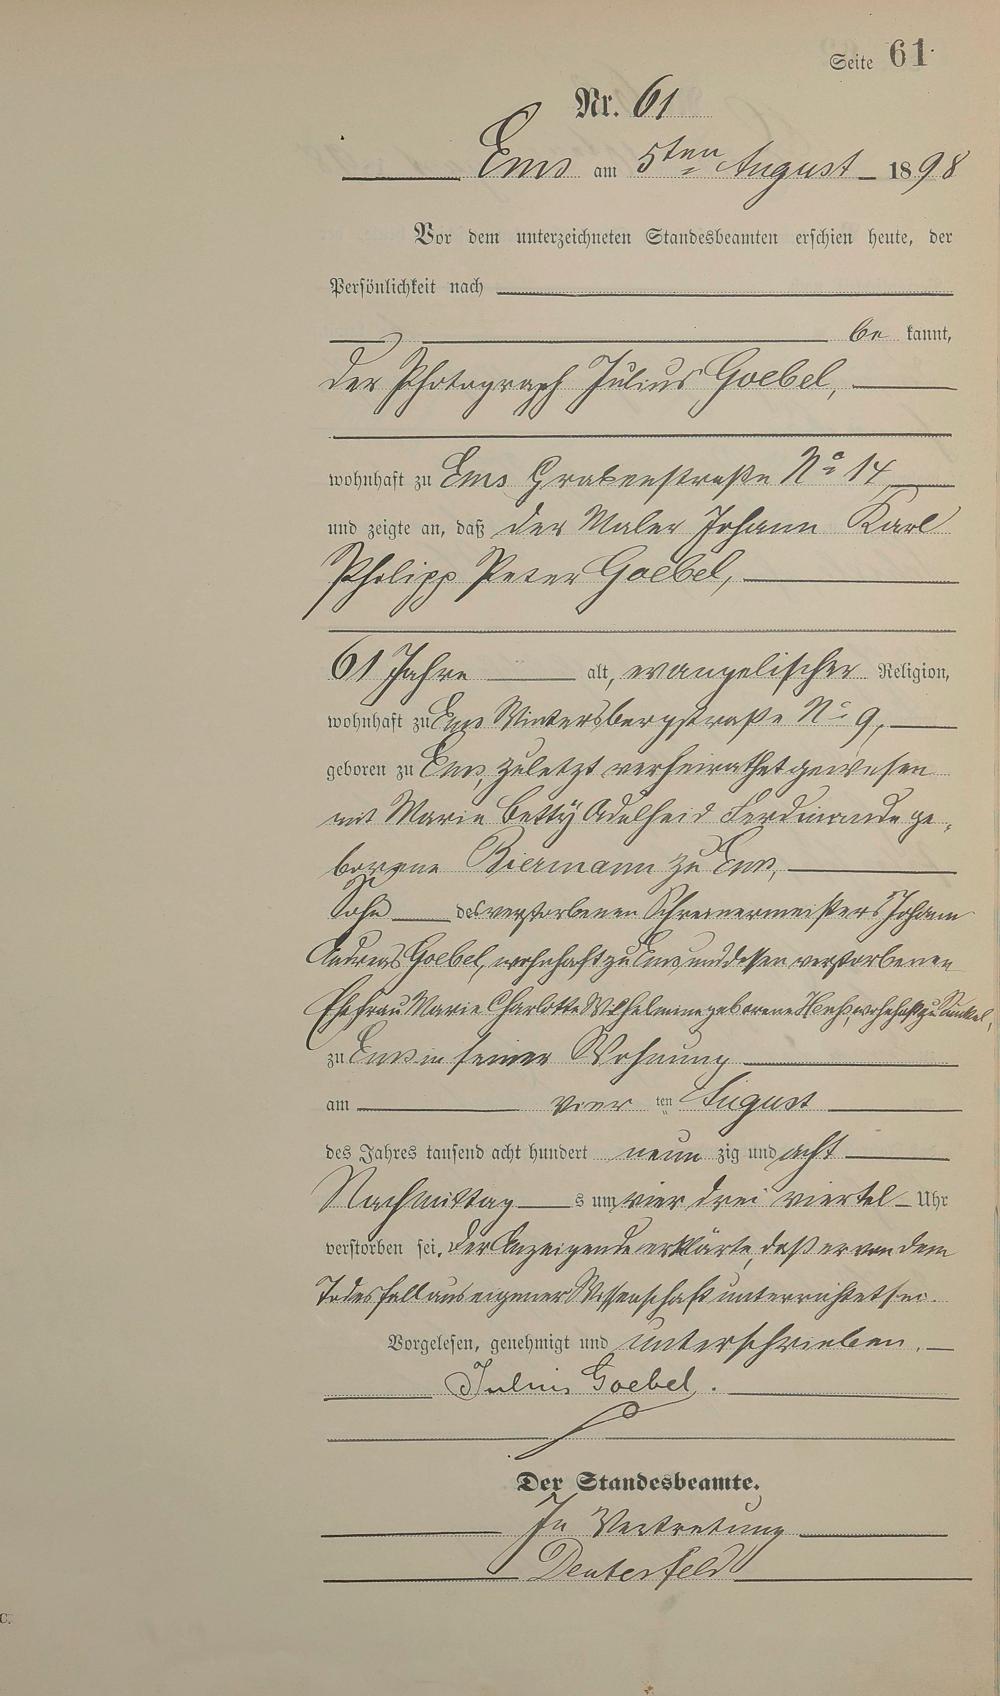 Seite 61.
Nr. 61
Ems am 5ten August 1898
Vor dem unterzeichneten Standesbeamten erschien heute, der
Persönlichkeit nach
be kannt,
der Photograph Julius Goebel,
wohnhaft zu Ems Grabenstraße No 14
und zeigte an, daß der Maler Johann Karl
Philipp Peter Goebel,
61 Jahre alt, evangelischer Religion,
wohnhaft zu Ems Wintersbergstraße No 9,
geboren zu Ems, zuletzt verheirathet gewesen
mit Marie Betty Adelheid Ferdinande ge-
borene Biermann zu Ems,
Sohn des verstorbenen Schreinermeisters Johann
Andreas Goebel, wohnhaft zu Ems und dessen verstorbenen
Ehefrau Marie Charlotte Wilhelmine geborene wohnhaft zu
zu Ems in seiner Wohnung
am vier ten August
des Jahres tausend acht hundert neun zig und acht
Nachmittag s um vier drei viertel Uhr
verstorben sei. Der Anzeigende erklärte, daß er von dem
Todesfall aus eigener Wissenschaft unterrichtet sei.
Vorgelesen, genehmigt und unterschrieben.
Julius Goebel.
Der Standesbeamte.
In Vertretung